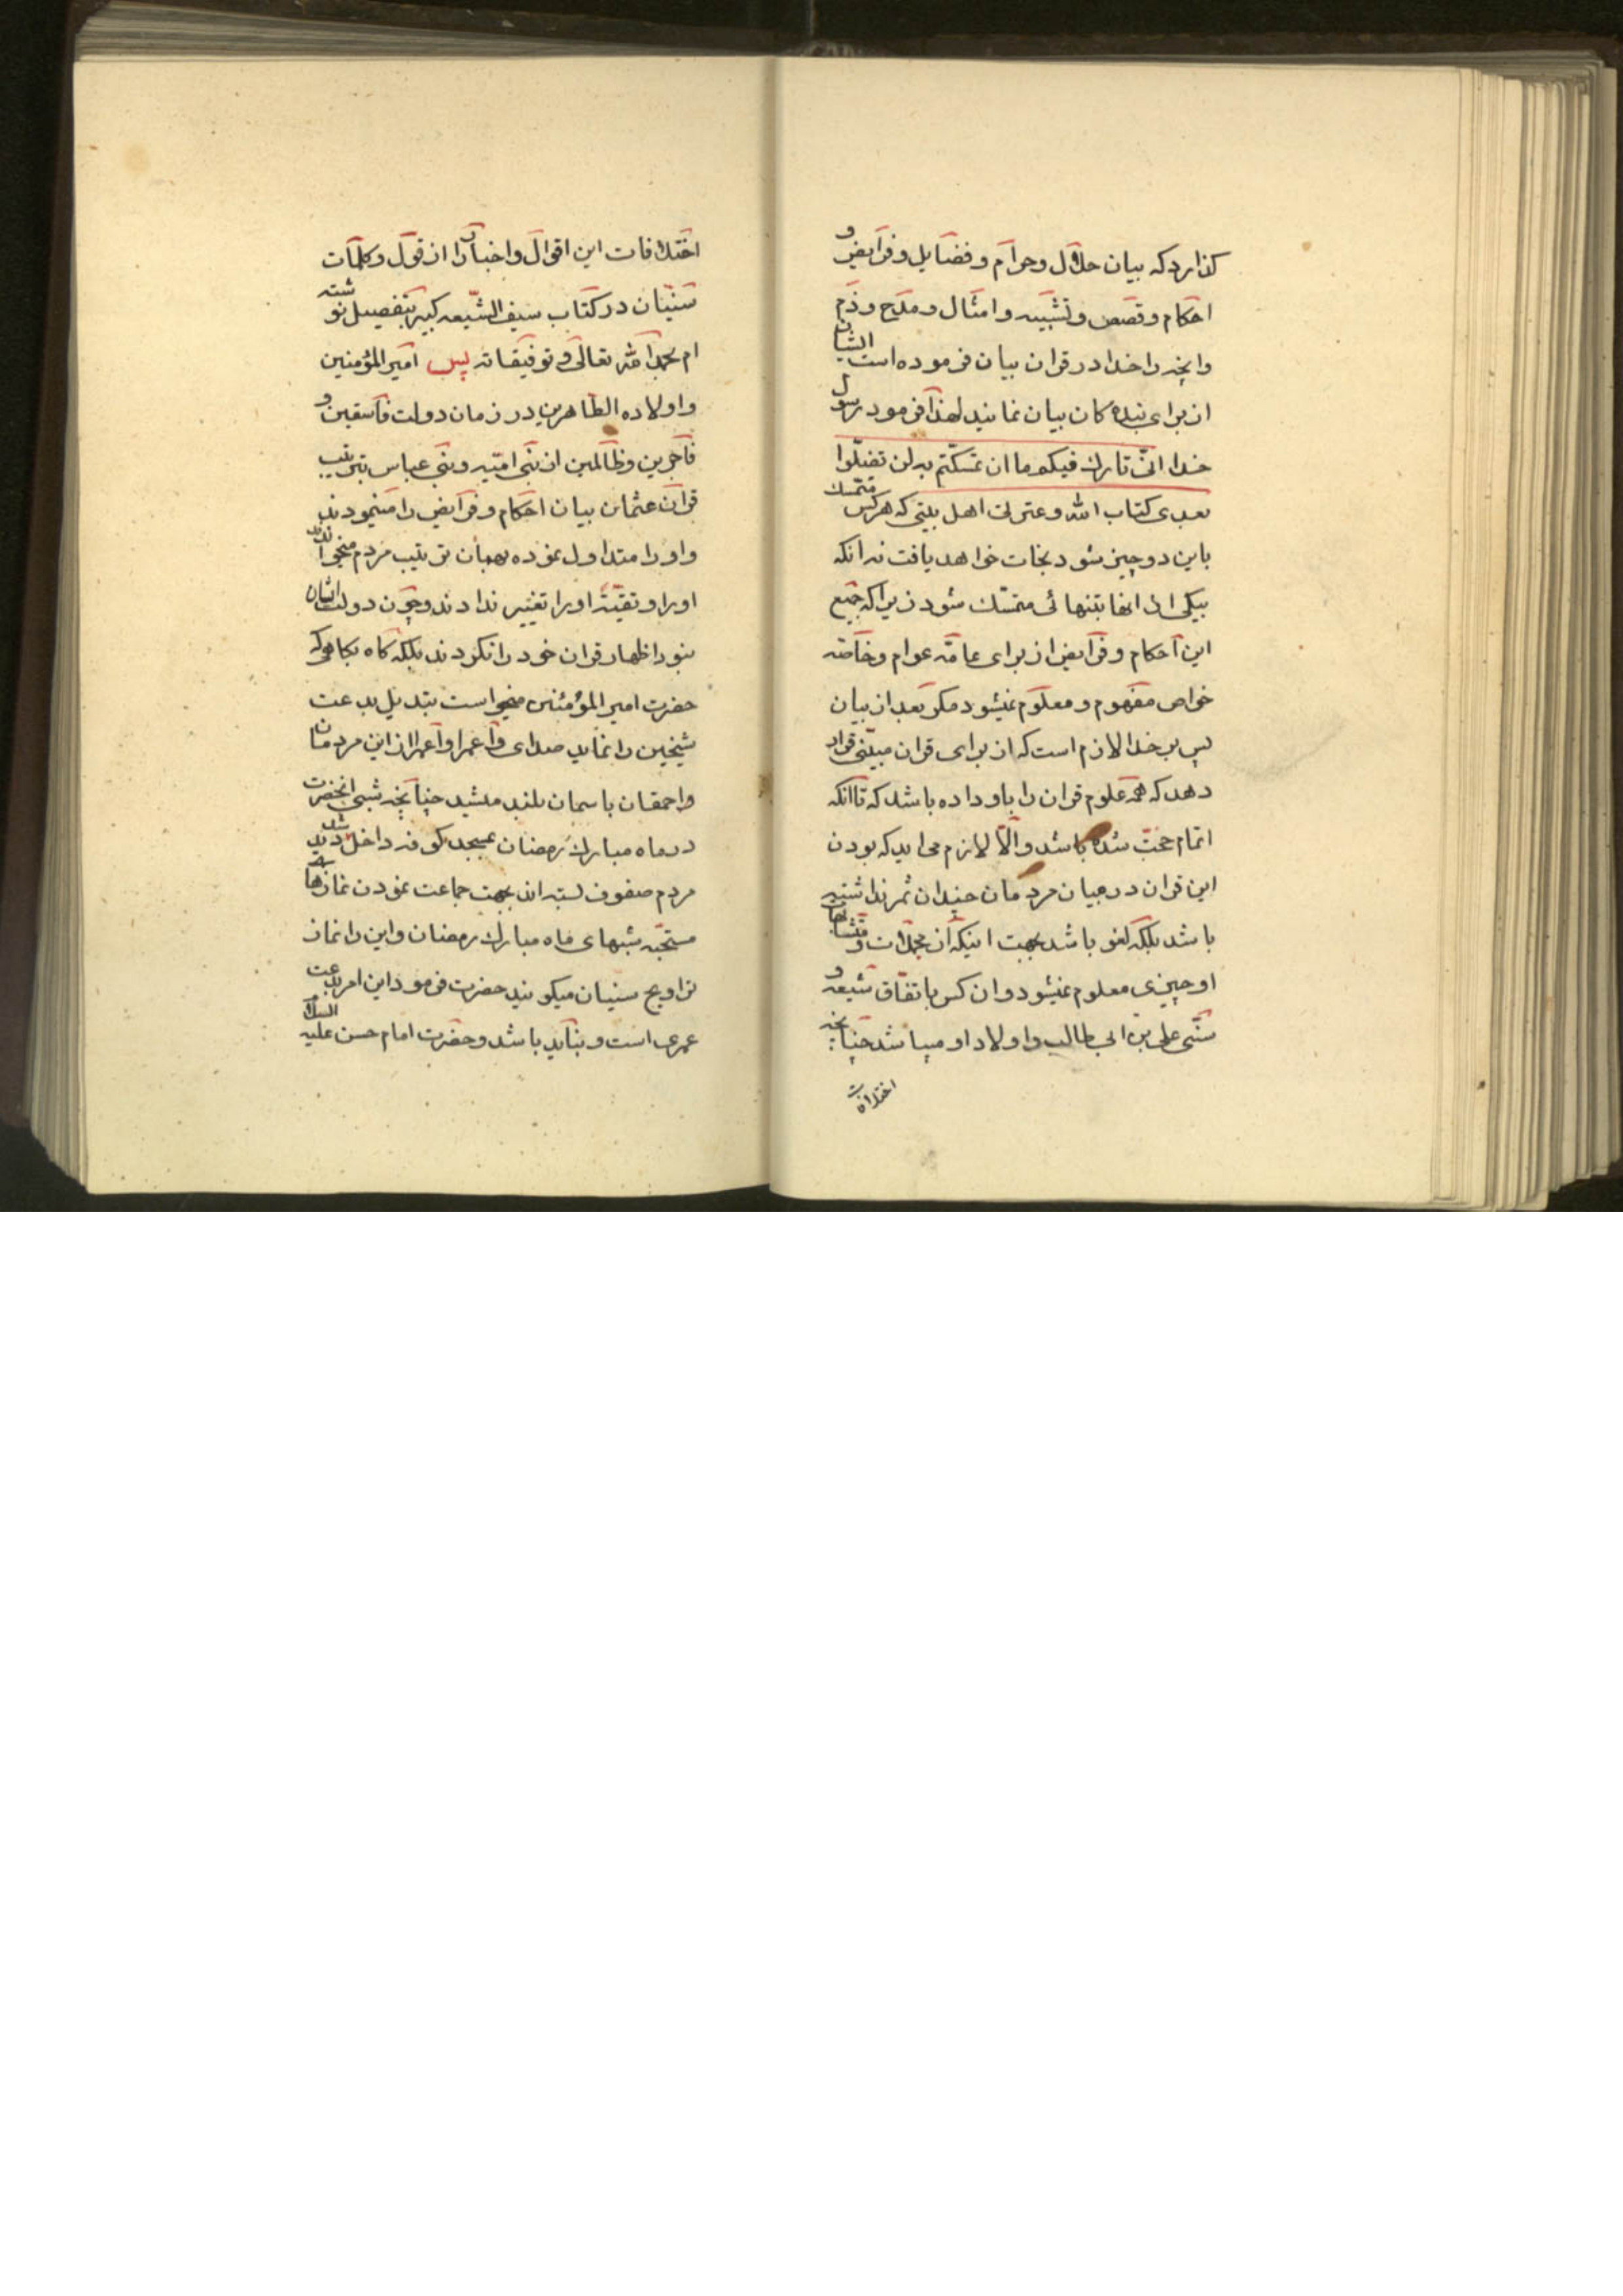 کذارد که بیان حلال و حرام و فضایل و فرایض و
احکام و قصص و تشبیه و امثال و مدح و ذم
و انچه را خدا در قران بیان فرموده است ایشان
از برای بنده کان بیان نمایند لهذا فرمود رسول
خدا انی تارك فیکم ما ان تمسکتم به لن تضلوا
بعدی کتاب الله و عترتی اهل بیتی که هر کس متمسك
باین دو چیز شود نجات خواهد یافت نه انکه
بیکی از انها بتنهائی متمسّك شود زیرا که جمیع
این احکام و فرایض از برای عامّه عوام و خاصّه
خواص مفهوم و معلوم نمیشود مکر بعد از بیان
پس بر خدا لازم است که از برای قران مبیّنی قرار
دهد که همه علوم قران را باو داده باشد که تا انکه
اتمام حجّت شده باشد و الّا لازم می اید که بودن
این قران در میان مردمان چندان ثمر نداشته
باشد بلکه لغو باشد بجهت اینکه از مجملات و متشابهات
او چیزی معلوم نمیشود و ان کس باتفاق شیعه و
سنّی علی بن ابی طالب و اولاد او میباشد چنانچه
اختلافات
اختلافات این اقوال و اخبار را از قول و کلمات
سنّیان در کتاب سیف الشّیعه کبیر بتفصیل نوشته
ام بحمد الله تعالی و توفیقاته پس امیر المؤمنین
و اولاده الطّاهرین در زمان دولت فاسقین و
فاجرین و ظالمین از بنی امیّه و بنی عباس بترتیب
قران عثمان بیان احکام و فرایض را مینمودند
و او را متداول نموده بهمان ترتیب مردم میخواندند
او را و تقیّتہ او را تغییر ندادند و چون دولت ایشان
نبود اظهار قران خود را نکردند بلکه کاه بکاهی که
حضرت امیر المؤمنین میخواست تبدیل بدعت
شیخین را نماید صدای وا عمرا وا عمرا از این مردمان
و احمقان باسمان بلند میشد چنانچه شبی انحضرت
در ماه مبارك رمضان بمسجد کوفه داخل شد دید
مردم صفوف بسته اند بجهت جماعت نمودن نمازهای
مستحبّه شبهای ماه مبارك رمضان و این را نماز
تراویح سنیان میکویند حضرت فرمود این امر بدعت
عمری است و نباید باشد و حضرت امام حسن علیه السلام